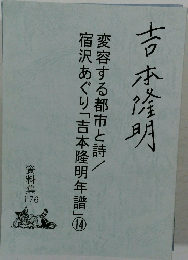 吉本隆明
変容する都市と詩/
宿沢あぐり「吉本隆明年譜」⑭
資料集
176